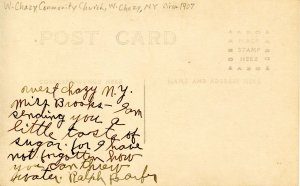 W. Chazy Community Church, W. Chazy, N.Y. Circa 1907
POST CARD
PLACE
STAMP
HERE
NAME AND ADDRESS HERE
West Chazy N.Y.
Miss Brooks— I am
sending you a
little taste of
sugar. for I have
not forgotten how
you can throw
water. Ralph